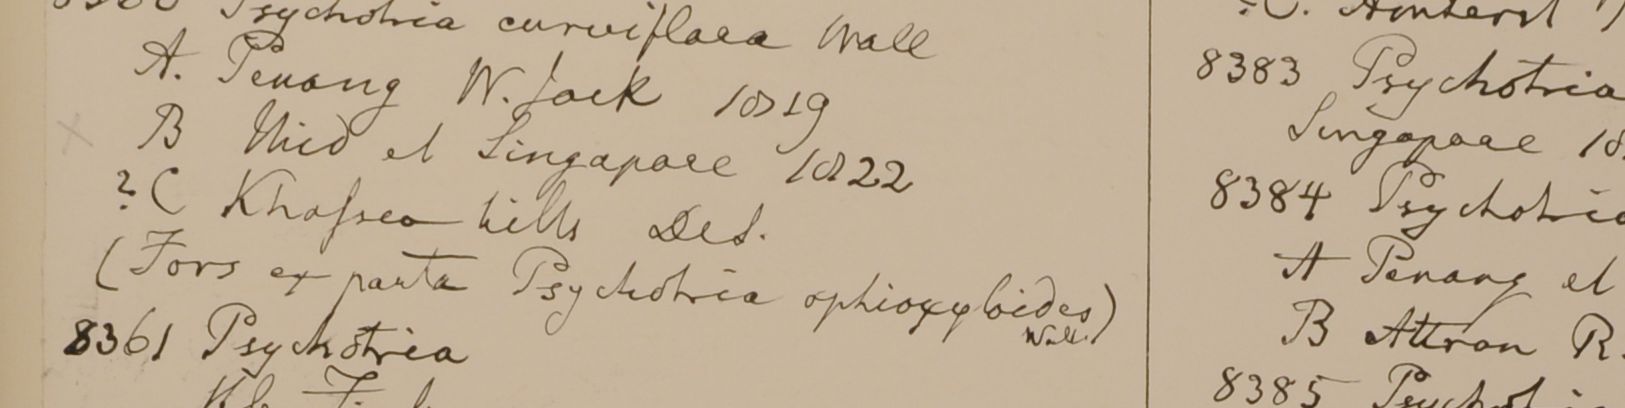 Psychotria curviflora Wall
A. Penang W. Jack 1819
B Ibid et Singapore 1822
?C Khassea hills Des.
(Fors ex parta Psychotria ophioxyloides)
Wall.
8361 Psychotria
8383 Psychotria
Singapore
8384 Psychotria
A Penang et
B Attran R.
8385 Psychotria